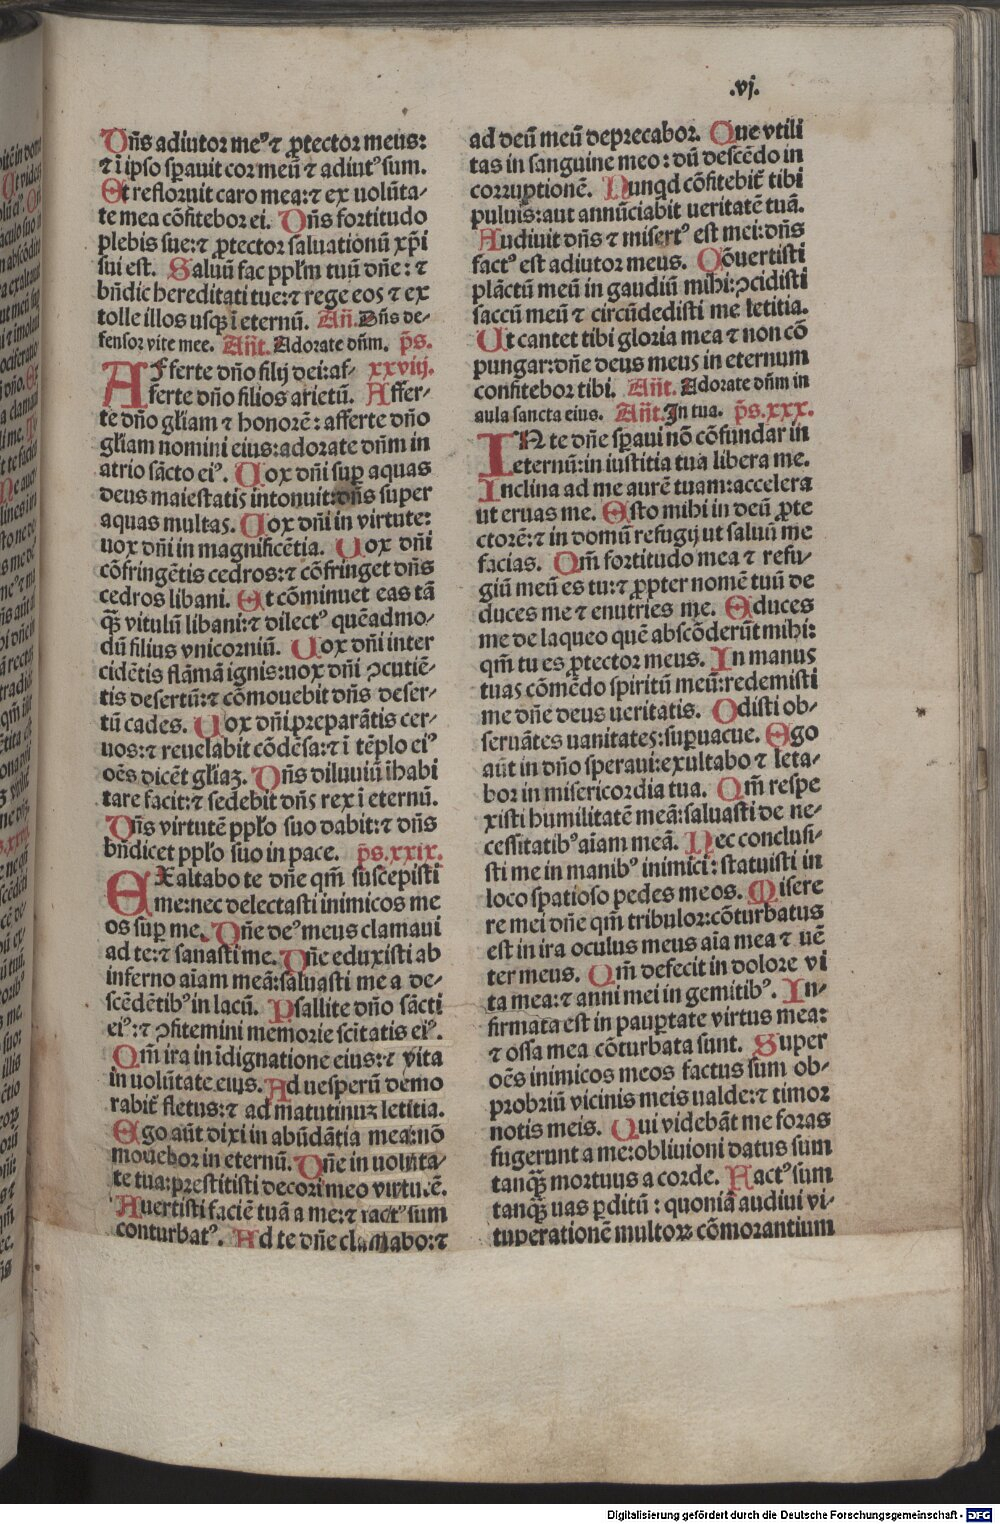 .vj.
Dñs adiutor meꝰ ⁊ ꝓtector meus:
⁊ ĩ ipso sꝑauit cor meũ ⁊ adiutꝰ sum.
Et refloruit caro mea: ⁊ ex uolũta-
te mea cõfitebor ei. Dñs fortitudo
plebis sue: ⁊ ꝓtector saluationũ xp̃i
sui est. Saluũ fac pp̃lm tuũ dñe: ⁊
bñdic hereditati tue: ⁊ rege eos ⁊ ex
tolle illos usq̃ ĩ eternũ. Añ. Dñs de-
fensor vite mee. Añt. Adorate dñm. p̃s.
AFferte dño filij dei: af- xxviij.
ferte dño filios arietũ. Affer-
te dño gl̃iam ⁊ honorẽ: afferte dño
gl̃iam nomini eius: adorate dñm in
atrio sãcto eiꝰ. Uox dñi suꝑ aquas
deus maiestatis intonuit: dñs super
aquas multas. Uox dñi in virtute:
uox dñi in magnificẽtia. Uox dñi
cõfringẽtis cedros: ⁊ cõfringet dñs
cedros libani. Et cõminuet eas tã
q̃ꝫ vitulũ libani: ⁊ dilectꝰ quẽadmo-
dũ filius vnicorniũ. Uox dñi inter
cidẽtis flãmã ignis: uox dñi ꝯcutiẽ-
tis desertũ: ⁊ cõmouebit dñs deser-
tũ cades. Uox dñi preparãtis cer-
uos: ⁊ reuelabit cõdẽsa: ⁊ ĩ tẽplo eiꝰ
oẽs dicẽt gl̃iaꝫ. Dñs diluuiũ ĩhabi
tare facit: ⁊ sedebit dñs rex ĩ eternũ.
Dñs virtutẽ pp̃lo suo dabit: ⁊ dñs
bñdicet pp̃lo suo in pace. p̃s. xxix.
EXaltabo te dñe qm̃ suscepisti
me: nec delectasti inimicos me
os suꝑ me. Dñe deꝰ meus clamaui
ad te: ⁊ sanasti me. Dñe eduxisti ab
inferno aĩam meã: saluasti me a de-
scẽdẽtibꝰ in lacũ. Psallite dño sãcti
eiꝰ: ⁊ ꝯfitemini memorie scĩtatis eiꝰ.
Qm̃ ira in ĩdignatione eius: ⁊ vita
in uolũtate eius. Ad uesperũ demo
rabit̃ fletus: ⁊ ad matutinuꝫ letitia.
Ego aũt dixi in abũdãtia mea: nõ
mouebor in eternũ. Dñe in uolũta-
te tua: prestitisti decori meo virtutẽ.
Auertisti faciẽ tuã a me: ⁊ factꝰ sum
conturbatꝰ. Ad te dñe clamabo: ⁊
ad deũ meũ deprecabor. Que vtili
tas in sanguine meo: dũ descẽdo in
corruptionẽ. Nunqd cõfitebit̃ tibi
puluis: aut annũciabit ueritatẽ tuã.
Audiuit dñs ⁊ misertꝰ est mei: dñs
factꝰ est adiutor meus. Cõuertisti
plãctũ meũ in gaudiũ mihi: ꝯcidisti
saccũ meũ ⁊ circũdedisti me letitia.
Ut cantet tibi gloria mea ⁊ non cõ
pungar: dñe deus meus in eternum
confitebor tibi. Añt. Adorate dñm in
aula sancta eius. Añt. In tua. p̃s. xxx.
IN te dñe sꝑaui nõ cõfundar in
eternũ: in iustitia tua libera me.
Inclina ad me aurẽ tuam: accelera
ut eruas me. Esto mihi in deũ ꝓte
ctorẽ: ⁊ in domũ refugij ut saluũ me
facias. Qm̃ fortitudo mea ⁊ refu-
giũ meũ es tu: ⁊ ꝓpter nomẽ tuũ de
duces me ⁊ enutries me. Educes
me de laqueo quẽ abscõderũt mihi:
qm̃ tu es ꝓtector meus. In manus
tuas cõmẽdo spiritũ meũ: redemisti
me dñe deus ueritatis. Odisti ob-
seruãtes uanitates: suꝑuacue. Ego
aũt in dño speraui: exultabo ⁊ leta-
bor in misericordia tua. Qm̃ respe
xisti humilitatẽ meã: saluasti de ne-
cessitatibꝰ aĩam meã. Nec conclusi-
sti me in manibꝰ inimici: statuisti in
loco spatioso pedes meos. Misere
re mei dñe qm̃ tribulor: cõturbatus
est in ira oculus meus aĩa mea ⁊ uẽ
ter meus. Qm̃ defecit in dolore vi
ta mea: ⁊ anni mei in gemitibꝰ. In-
firmata est in pauꝑtate virtus mea:
⁊ ossa mea cõturbata sunt. Super
oẽs inimicos meos factus sum ob-
probriũ vicinis meis ualde: ⁊ timor
notis meis. Qui videbãt me foras
fugerunt a me: obliuioni datus sum
tanq̃ꝫ mortuus a corde. Factꝰ sum
tanq̃ꝫ uas ꝑditũ: quoniã audiui vi-
tuperationẽ multoꝝ cõmorantium
Digitalisierung gefördert durch die Deutsche Forschungsgemeinschaft - DFG